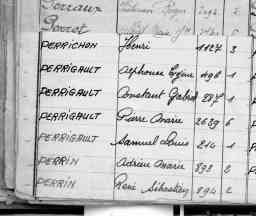 Perraux
Perrot
PERRICHON Henri 1127 3
PERRIGAULT Alphonse Eugène 496 1
PERRIGAULT Constant Gabriel 287 1
PERRIGAULT Pierre Marie 2639 6
PERRIGAULT Samuel Louis 214 1
PERRIN Adrien Marie 893 2
PERRIN René Sébastien 894 2